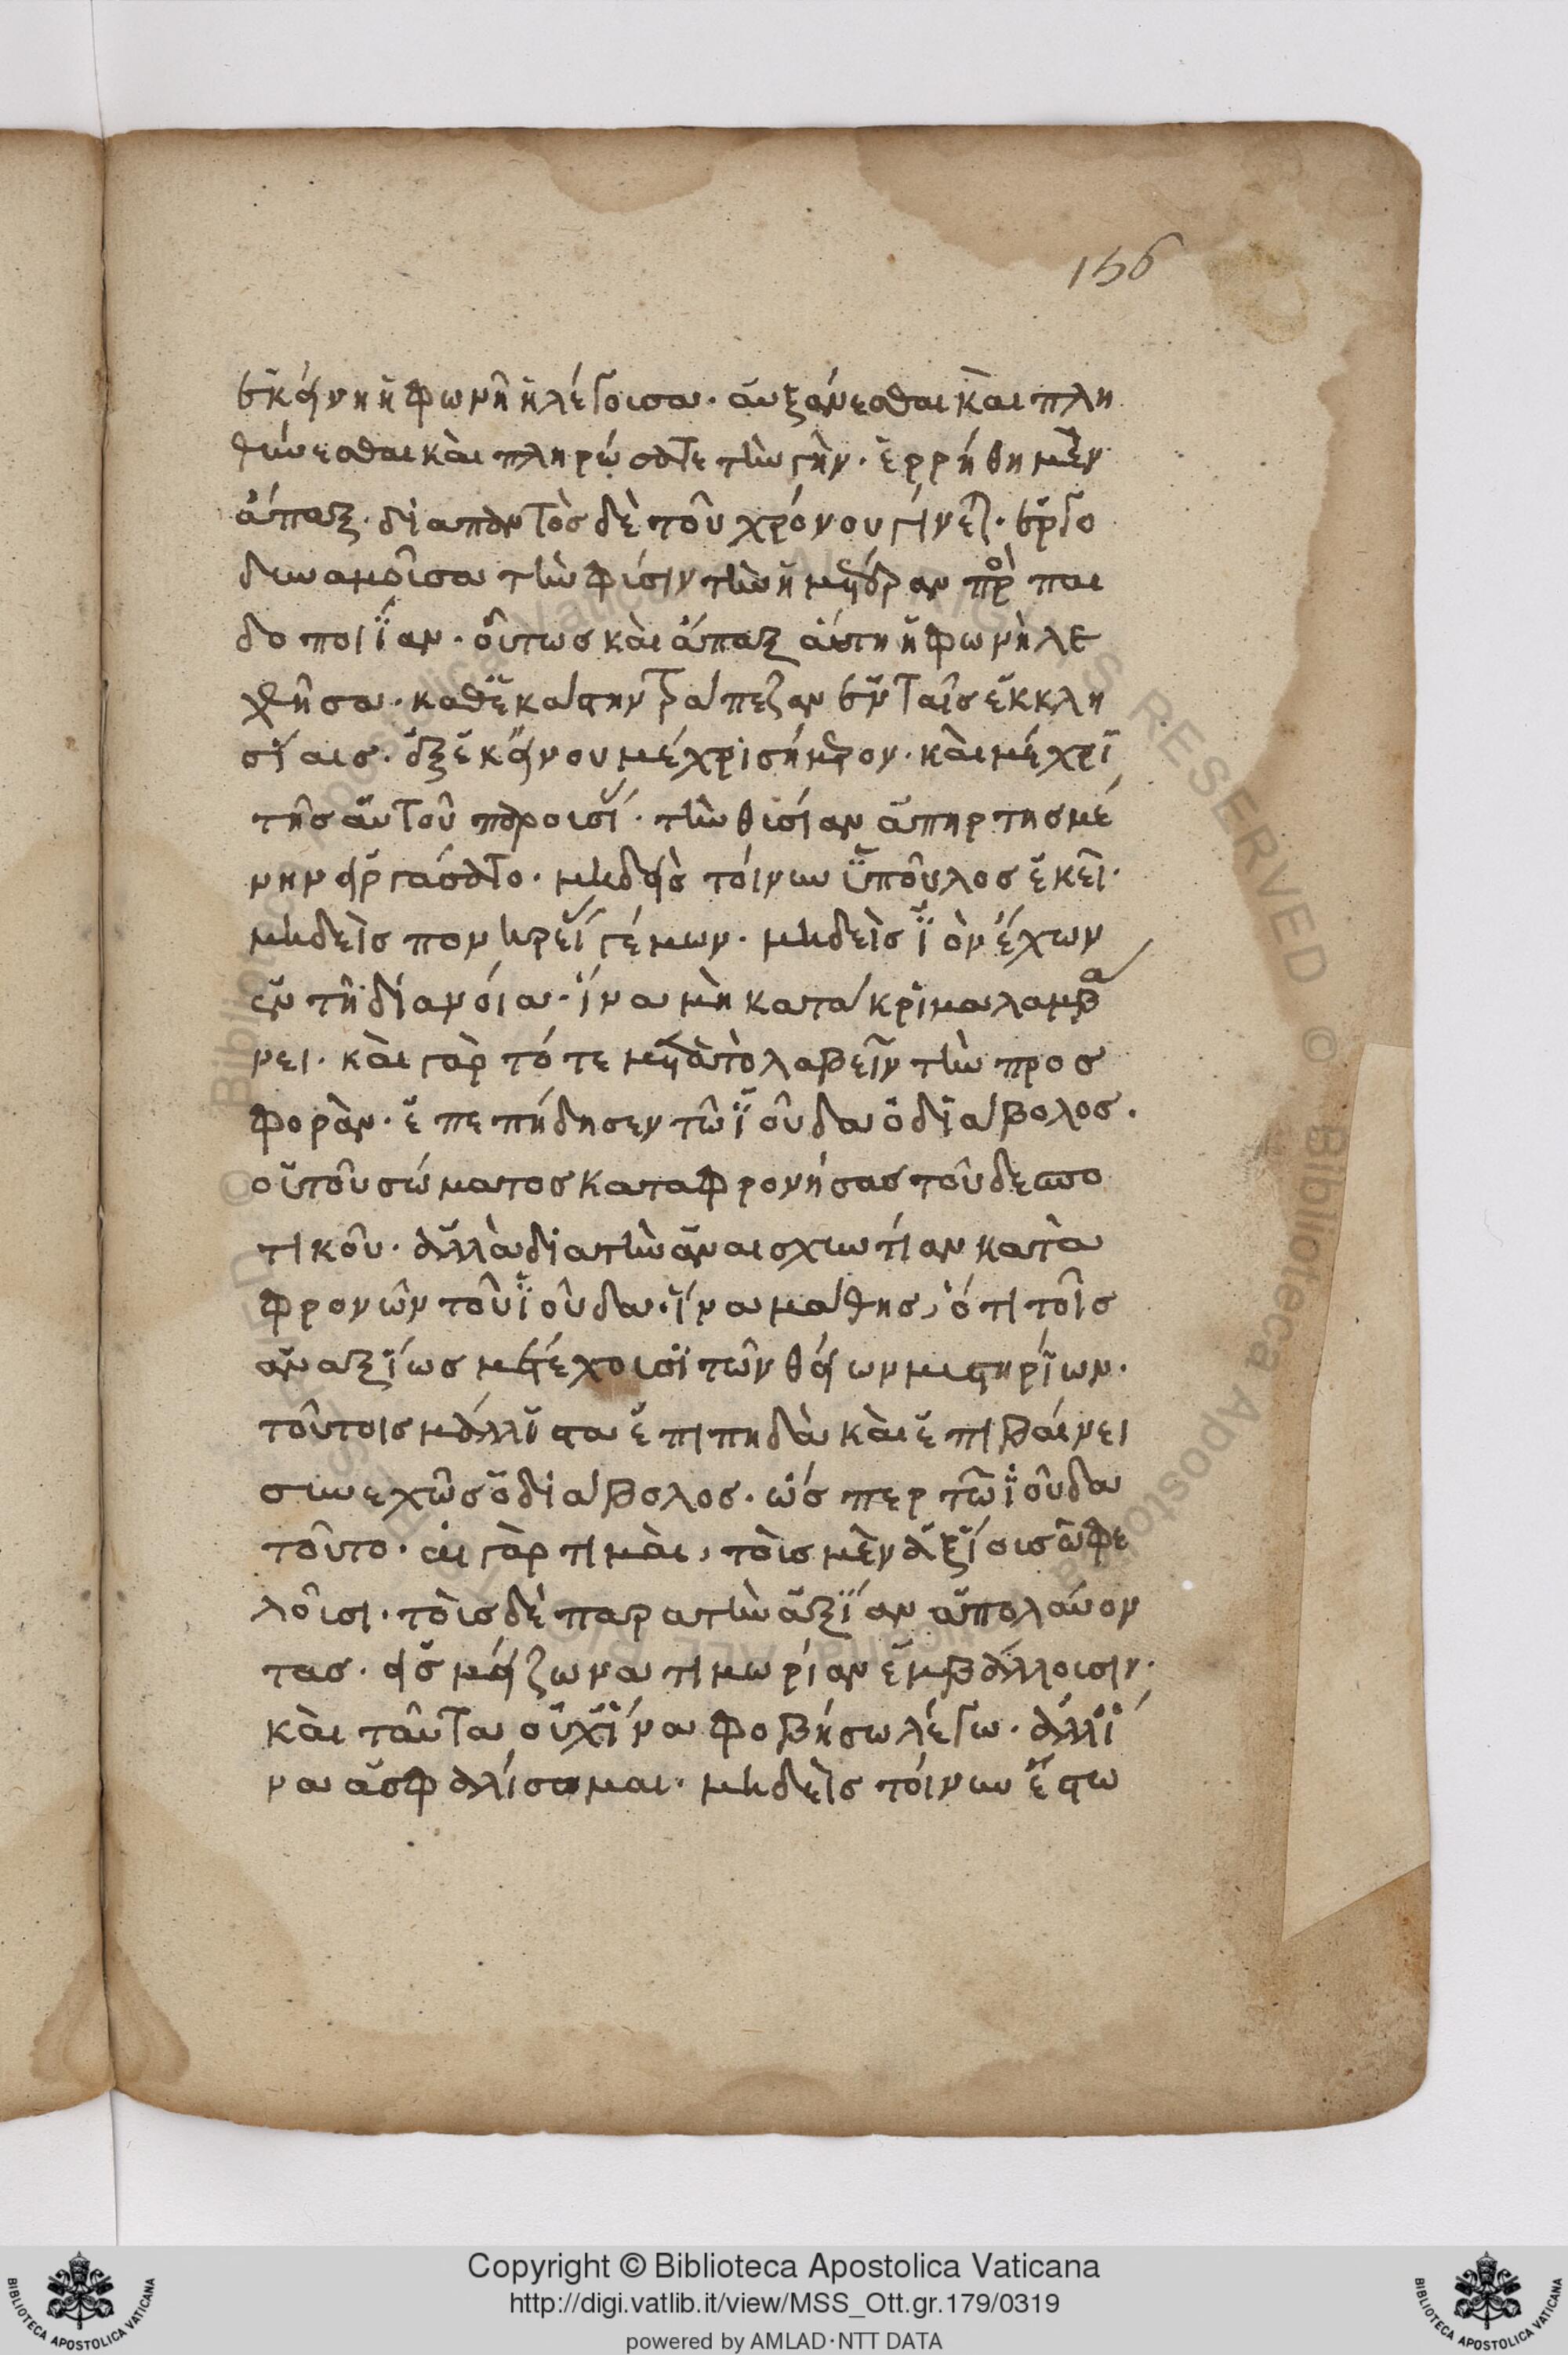 156
ἐκείνη ἡ φωνῆ ἡ λέγοισα· ἀυξάνεσθαι και πλη
θύνεσθαι και πληρώσατε τὴν γὴν· ἐρρήθη μὲν
ἅπαξ· διαπαντὸς δὲ τοῦ χρόνου γίνεται· ἔργο
δυναμοῖσα τὴν φύσιν τὴν ἡμετέραν πρὸ παι
δοποιΐαν· οὕτως και ἅπαξ ἁύτη ἡ φωνὴ λε
χθῆσα· καθ ἑκάστην τράπεζαν ἐν ταῖς ἐκκλη
σίαις· ἀξ ἐκείνου μέχρι σήμερον· και μέχρι
τῆς ἀυτοῦ παροισί· τὴν θισίαν ἀπηρτησμέ
νην εἰργάσατο· μηδεὶς τόινυν ὕπουλος ἐκεῖ·
μηδεὶς πονηρεῖ γέμων· μηδεὶς ἰὸν ἔχων
ἐν τῆ διανοία· ἵνα μὴ κατάκριμα λαμβά
νει· και γὰρ τότε μετὰ τὸ λαβεῖν τὴν προσ
φορὰν· ἐπεπήδησεν τῶ ἰούδα ὁ διάβολος·
οὐ τοῦ σώματος καταφρονήσας τοῦ δεσπο
τικοῦ· ἀλλὰ δια τὴν ἀναισχυντίαν κατα
φρονῶν τοῦ ἰούδα· ἵνα μάθης, ὅτι τοῖς
ἀναξίως μετέχοισι τῶν θείων μιστηρίων·
τούτοις μάλλιστα ἐπιπηδὰ και ἐπιβαίνει
συνεχῶς ὁ διάβολος· ὥσπερ τῶ ἰούδα
τοῦτο· ἁι γὰρ τιμὰι, τὸις μὲν ἀξίοις ὠφε
λοῖσι· τὸις δὲ παρα τὴν ἀξίαν ἀπολάυον
τας· εἰς μείζωνα τιμωρίαν ἐμβάλλοισιν·
και ταῦτα οὐχ ἵνα φοβήσω λέγω· ἀλλ ἵ
να ἀσφαλίσωμαι· μηδεὶς τόινυν ἔστω
Copyright © Biblioteca Apostolica Vaticana
http://digi.vatlib.it/view/MSS_Ott.gr.179/0319
powered by AMLAD·NTT DATA